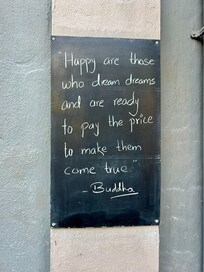 "Happy are those
who dream dreams
and are ready
to pay the price
to make them
come true"
- Buddha